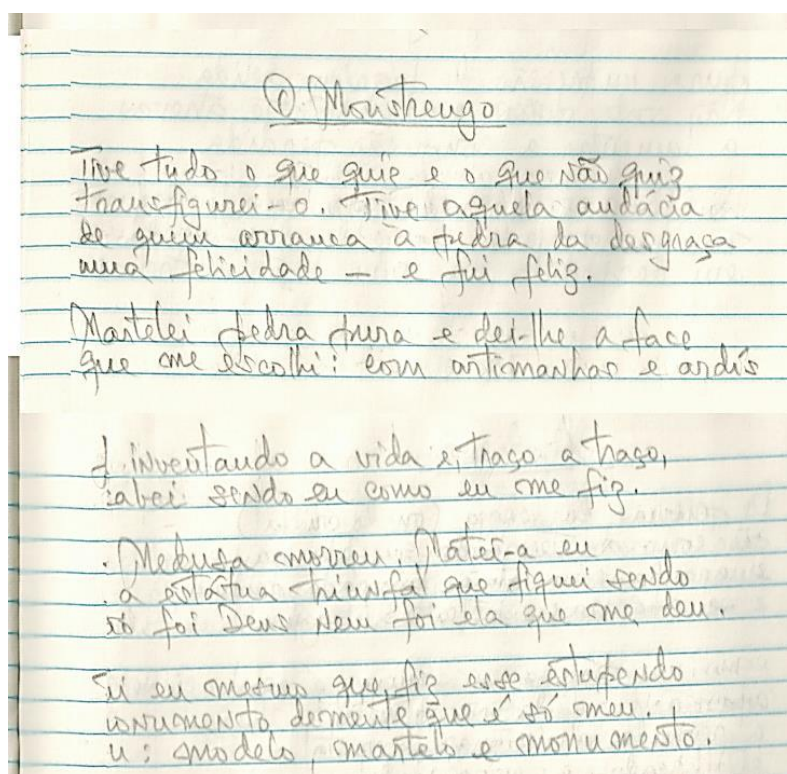 O Monstrengo
Tive tudo o que quis e o que não quiz
transfigurei-o. Tive aquela audácia
de quem arranca à pedra da desgraça
uma felicidade — e fui feliz.
Martelei pedra pura e dei-lhe a face
que me escolhi: com artimanhas e ardís
inventando a vida e, traço a traço,
cabei sendo eu como eu me fiz.
Medusa morreu. Matei-a eu
a estátua triunfal que fiquei sendo
foi Deus nem foi ela que me deu.
ui eu mesmo que fiz esse estupendo
onumento demente que é só meu.
u: modelo, martelo e monumento.